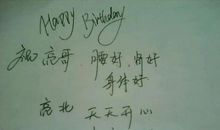 Happy Birthday
祝高哥,腰好,肾好
身体好
高兆 天天开心